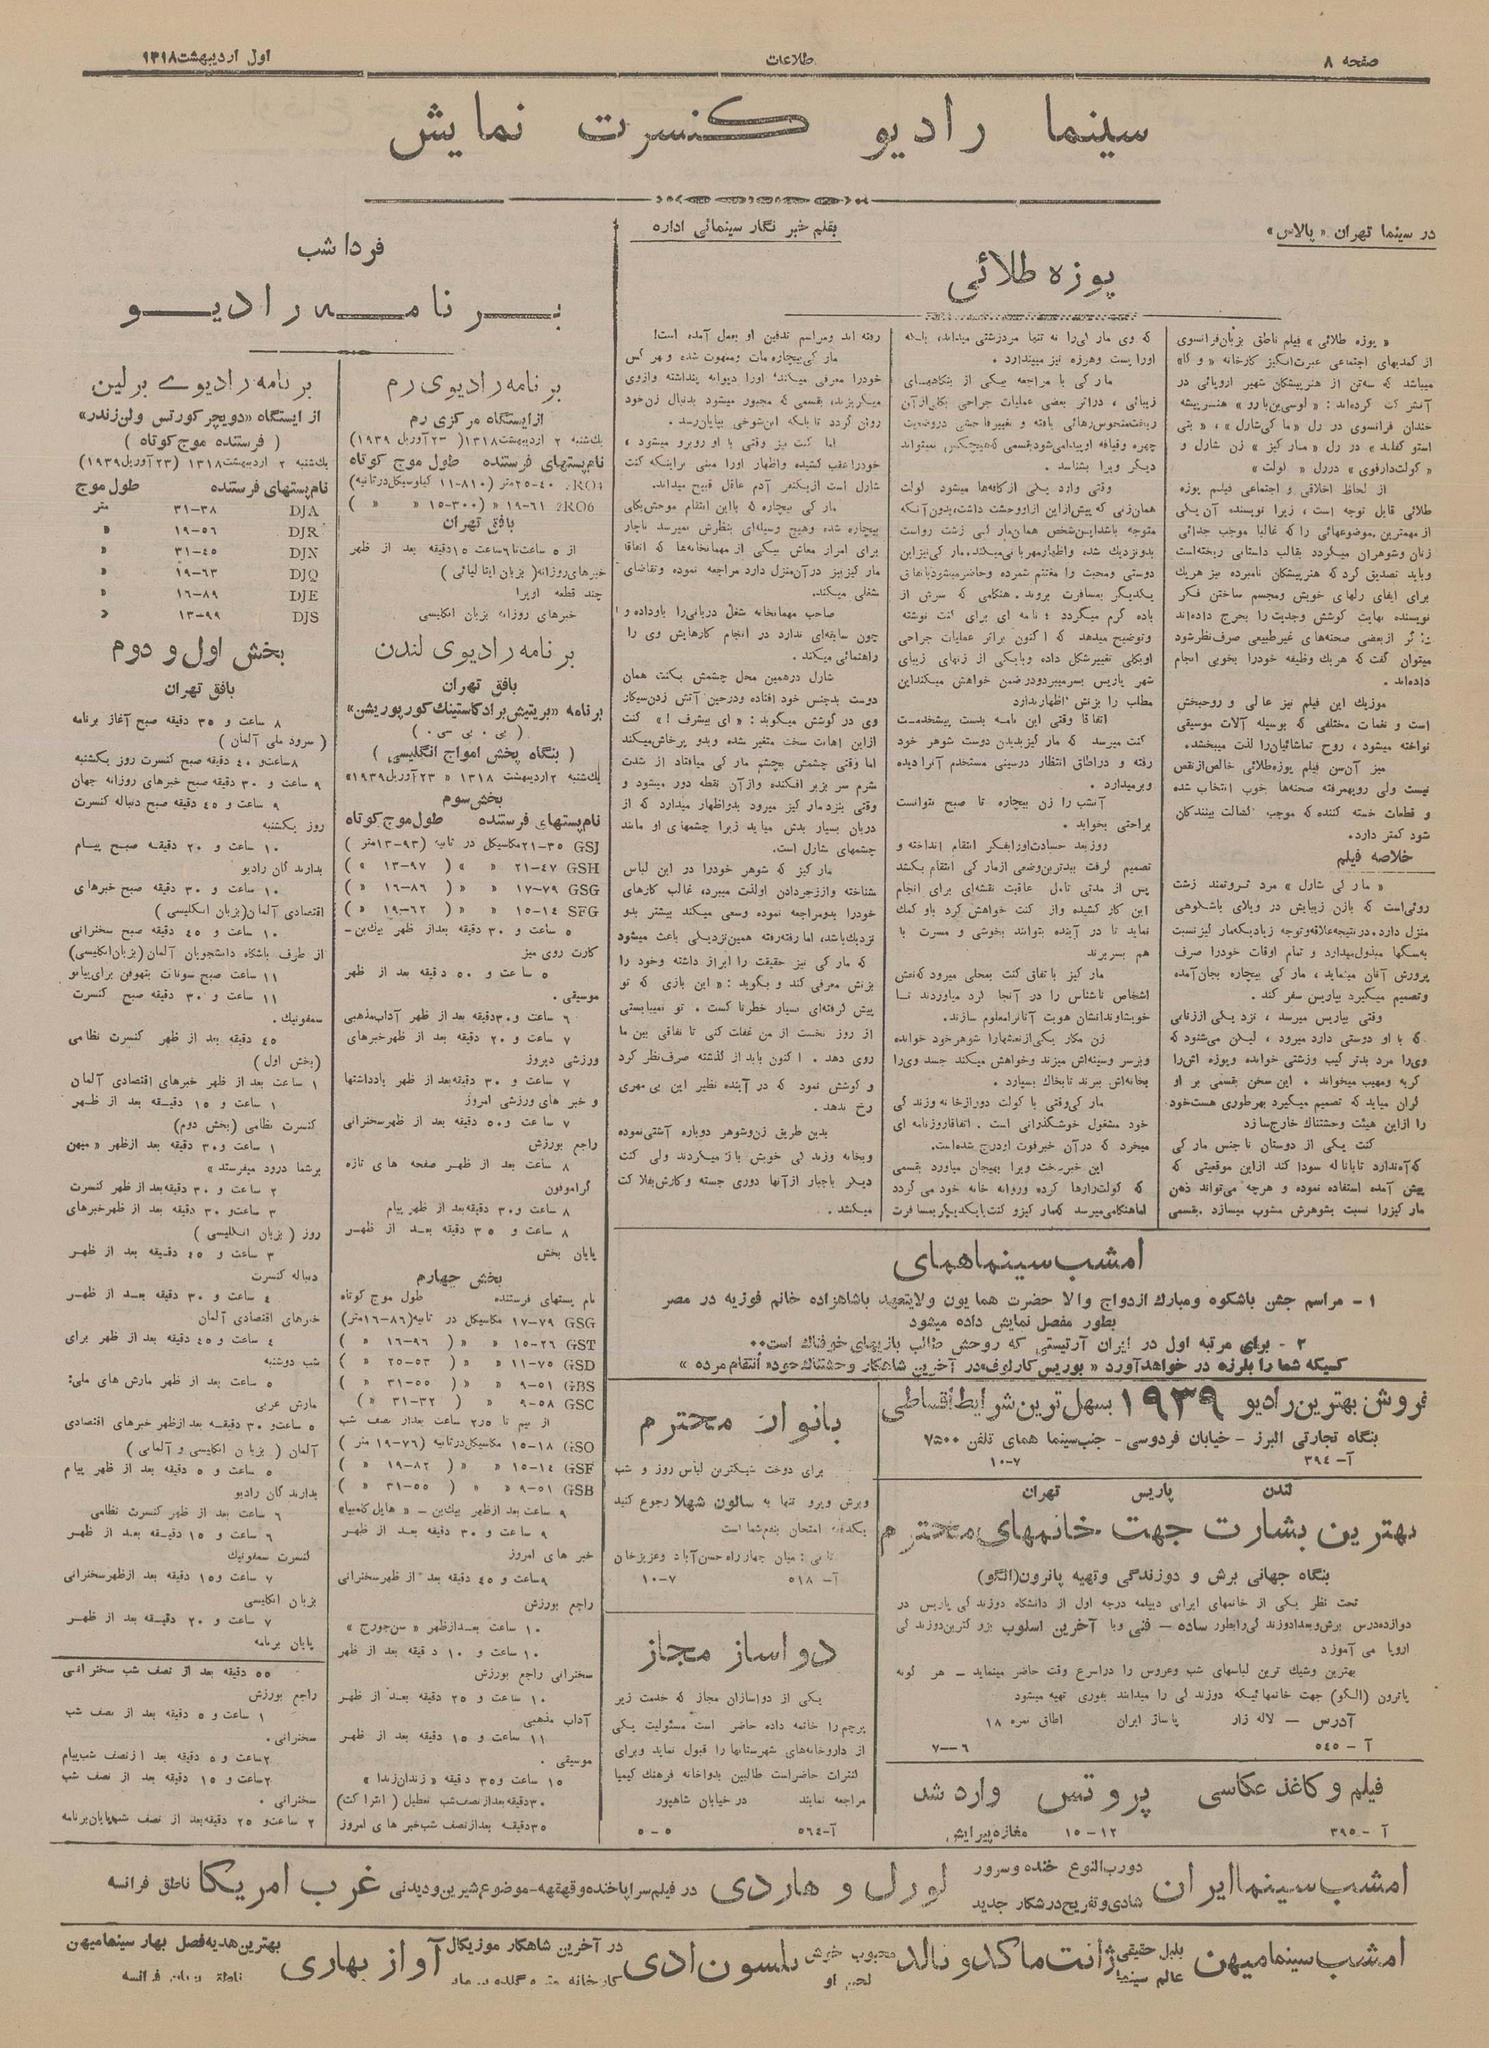 صفحه ۸
طلاعات
اول اردیبهشت ۱۳۱۸
سینما رادیو کنسرت نمایش
در سینما تهران «پالاس»
بقلم خبر نگار سینمائی اداره
پوزه طلائی
« پوزه طلائی » فیلم ناطق بزبان فرانسوی
از کمدیهای اجتماعی عبرت انگیز کارخانه
میباشد که سه تن از هنرپیشگان شهیر اروپائی در
خندان فرانسوی در رل « مار کی شارل » ، « بتی
استو کفلد» در رل « مار کیز » زن شارل و
« کولت دارفوی » دررل « کنت »
از لحاظ اخلاقی و اجتماعی فیلم پوزه
طلائی قابل توجه است ، زیرا نویسنده آن یکی
از مهمترین موضوعهائی را که غالبا موجب جدائی
زنان وشوهران میگردد بقالب داستانی ریخته است
وباید تصدیق کرد که هنرپیشگان نامبرده نیز هریك
برای ایفای رلهای خویش ومجسم ساختن فکر
نویسنده نهایت کوشش وجدیت را بخرج داده اند
گر ازبعضی صحنه های غیرطبیعی صرف نظر شود
میتوان گفت که هریك وظیفه خودرا بخوبی انجام
داده اند .
موزیك این فیلم نیز عالی و روحبخش
است و نغمات مختلفی که بوسیله آلات موسیقی
نواخته میشود ، روح تماشائیان را لذت میبخشد.
میز آن سن فیلم پوزه طلائی خالص از نقص
نیست ولی رویهمرفته صحنه ها خوب انتخاب شده
و قطعات خسته کننده که موجب کسالت بینندگان
شود کمتر دارد.
خلاصه فیلم
« مار کی شارل » مرد ثروتمند زشت
روئی است که بازن زیبایش در ویلای باشکوهی
منزل دارد. درنتیجه علاقه وتوجه زیادیکه مار کیز نسبت
به سگها مبذول میدارد و تمام اوقات خودرا صرف
پرورش آنان مینماید ، مار کی بیچاره بجان آمده
وتصمیم میگیرد بپاریس سفر کند .
وقتی بپاریس میرسد ، نزد یکی اززنانی
که با او دوستی دارد میرود ، لیکن می شنود که
وی را مرد بدتر کیب وزشتی خوانده وپوزه اش را
کریه ومهیب میخواند . این سخن بقسمی بر او
گران میاید که تصمیم میگیرد بهرطوری هست خود
را ازاین هیئت وحشتناك خارج سازد
کنت یکی از دوستان ناجنس مار کی
پیش آمده استفاده نموده و هرچه می تواند ذهن
مار کیزرا نسبت بشوهرش مشوب میسازد .بقسمی
که وی مار کی را نه تنها مردزشتی میداند، بلکه
اورا پست وهرزه نیز میپندارد .
مار کی با مراجعه بیکی از بنگاههای
زیبائی ، دراثر بعضی عملیات جراحی بکلی از آن
ریخت منحوس رهائی یافته و تغییر فاحشی دروضعیت
چهره وقیافه اوپیدا میشود بقسمی که هیچکس نمیتواند
دیگر ویرا بشناسد .
وقتی وارد یکی از کافه ها میشود کولت
همان زنی که پیش ازاین ازاو وحشت داشت، بدون آنکه
متوجه باشد این شخص همان مار کی زشت رواست
بدو نزدیك شده واظهار مهربانی میکند. مار کی نیز این
دوستی ومحبت را مغتنم شمرده وحاضر میشود باتفاق
یکدیگر بمسافرت بروند. هنگامی که سرش از
باده گرم میگردد ؛ نامه ای برای کنت نوشته
وتوضیح میدهد که اکنون براثر عملیات جراحی
اوبکلی تغییر شکل داده وبایکی از زنهای زیبای
شهر پاریس بسر میبرد ودرضمن خواهش میکند این
مطلب را بزنش اظهار ندارد
اتفاقا وقتی این نامه بدست پیشخدمت
کنت میرسد که مار کیز بدیدن دوست شوهر خود
رفته و دراطاق انتظار درسینی مستخدم آنرا دیده
وبرمیدارد .
آنشب را زن بیچاره تا صبح نتوانست
براحتی بخوابد .
روز بعد حسادت اورا بفکر انتقام انداخته و
تصمیم گرفت ببدترین وضعی ازمار کی انتقام بکشد
پس از مدتی تامل عاقبت نقشه ای برای انجام
این کار کشیده واز کنت خواهش کرد باو کمك
نماید تا در آینده بتوانند بخوشی و مسرت با
هم بسر برند
مار کیز با تفاق کنت بمحلی میرود که نعش
اشخاص ناشناس را در آنجا گرد میاوردند تا
خویشاوندانشان هویت آنانرا معلوم سازند.
زن مکار یکی از نعشها را شوهر خود خوانده
وبرسر وسینه اش میزند وخواهش میکند جسد وی را
بخانه اش ببرند تا بخاك بسپارد .
مار کی وقتی با کولت دورازخانه وزندگی
خود مشغول خوشگذرانی است . اتفاقا روزنامه ای
میخرد که در آن خبر فوت او درج شده است.
این خبر سخت ویرا بهیجان میاورد بقسمی
که کولت را رها کرده وروانه خانه خود می گردد
اما هنگامی میرسد که مار کیز و کنت با یکدیگر بمسافرت
رفته اند ومراسم تدفین او بعمل آمده است!
مار کی بیچاره مات ومبهوت شده وبهر کس
خودرا معرفی میکند، اورا دیوانه پنداشته وازوی
میگریزند، بقسمی که مجبور میشود بدنبال زن خود
روان گردد تا بلکه این شوخی بپایان رسد.
اما کنت نیز وقتی با او روبرو میشود ،
خودرا عقب کشیده واظهار اورا مبنی براینکه کنت
شارل است ازیکنفر آدم عاقل قبیح میداند.
مار کی بیچاره که بااین انتقام موحش بکلی
بیچاره شده وهیچ وسیله ای بنظرش نمیرسد ناچار
برای امرار معاش بیکی از مهمانخانه ها که اتفاقا
مار کیز نیز در آن منزل دارد مراجعه نموده وتقاضای
شغلی میکند.
صاحب مهمانخانه شغل دربانی را باوداده و
چون سابقه ای ندارد در انجام کارهایش وی را
راهنمائی میکند .
شارل درهمین محل چشمش بکنت همان
دوست بدجنس خود افتاده ودرحین آتش زدن سیگار
وی در گوشش میگوید: « ای بیشرف !» کنت
ازاین اهانت سخت متغیر شده وبدو پرخاش میکند
اما وقتی چشمش بچشم مار کی میافتاد از شدت
شرم سر بزیر افکنده واز آن نقطه دور میشود و
وقتی بنزد مار کیز میرود بدو اظهار میدارد که از
دربان بسیار بدش میاید زیرا چشمهای او مانند
چشمهای شارل است.
مار کیز که شوهر خودرا در این لباس
شناخته واززجردادن اولذت میبرد، غالب کارهای
خودرا بدومراجعه نموده وسعی میکند بیشتر بدو
نزدیك باشد، اما رفته رفته همین نزدیکی باعث میشود
که مار کی نیز حقیقت را ابراز داشته وخود را
بزنش معرفی کند و بگوید: « این بازی که تو
پیش گرفته ای بسیار خطرناکست . تو نمیبایستی
از روز نخست از من غفلت کنی تا نفاقی بین ما
روی دهد . اکنون باید از گذشته صرف نظر کرد
و کوشش نمود که در آینده نظیر این بی مهری
رخ ندهد .
بدین طریق زن وشوهر دوباره آشتی نموده
وبخانه وزندگی خویش باز میگردند ولی کنت
دیگر باجبار از آنها دوری جسته
میکشد .
امشب سینما همای
۱ - مراسم جشن باشکوه ومبارك ازدواج والا حضرت همایون ولایتعهد باشاهزاده خانم فوزیه در مصر
بطور مفصل نمایش داده میشود
۲ - برای مرتبه اول در ایران آرتیستی که روحش طالب بازیهای خوفناك است..
کسیکه شما را بلرزه در خواهد آورد « بوریس کارلوف» در آخرین شاهکار وحشتناك خود « انتقام مرده »
فروش بهترین رادیو ۱۹۳۹ بسهل ترین شرایط اقساطی
بنگاه تجارتی البرز - خیابان فردوسی - جنب سینما همای تلفن ۷۵۰۰
آ- ۳۹۴ ۱۰-۷
لندن پاریس تهران
بهترین بشارت جهت خانمهای محترم
بنگاه جهانی برش و دوزندگی وتهیه پاترون(الگو)
تحت نظر یکی از خانمهای ایرانی دیپلمه درجه اول از دانشگاه دوزندگی پاریس در
دوازده درس برش وبعدا دوزندگی رابطور ساده - فنی وبا آخرین اسلوب بزرگترین دوزندگی
اروپا می آموزد
بهترین وشیك ترین لباسهای شب وعروس را دراسرع وقت حاضر مینماید - هر گونه
پاترون (الگو) جهت خانمهائیکه دوزندگی را میدانند بفوری تهیه میشود
آدرس - لاله زار پاساژ ایران اطاق نمره ۱۸
آ - ۵۴۵ ۷-۶
فیلم و کاغذ عکاسی پروتس وارد شد
آ - ۳۹۵ ۱۵-۱۲ مغازه پیرایش
بانوان محترم
برای دوخت شیکترین لباس روز و شب
وبرش وپرو تنها به سالون شهلا رجوع کنید
یکدفعه امتحان بنفع شما است
نشانی : میان چهارراه حسن آباد وعزیزخان
آ- ۵۱۸ ۱۰-۷
دواساز مجاز
یکی از دواسازان مجاز که خدمت زیر
پرچم را خاتمه داده حاضر است مسئولیت یکی
از داروخانه های شهرستانها را قبول نماید وبرای
کنترات حاضر است طالبین بدواخانه فرهنگ کیمیا
مراجعه نمایند در خیابان شاهپور
آ-۵۶۴ ۵-۵
فردا شب
برنامه رادیو
برنامه رادیوی رم
از ایستگاه مرکزی رم
یك شنبه ۲ اردیبهشت ۱۳۱۸ ( ۲۳ آوریل ۱۹۳۹)
نام پستهای فرستنده طول موج کوتاه
2RO4 ۲۵-۴۰ متر (۱۱-۸۱۰ کیلوسیکل در ثانیه)
2RO6 ۱۹-۶۱ « (۱۵-۳۰۰ « « )
بافق تهران
از ۵ ساعت تا ۶ ساعت ۱۵ دقیقه بعد از ظهر
خبرهای روزانه( بزبان ایتالیائی )
چند قطعه اوپرا
خبرهای روزانه بزبان انگلیسی
برنامه رادیوی لندن
بافق تهران
برنامه «بریتیش براد کاستینك کورپوریشن»
( بی . بی سی . )
( بنگاه پخش امواج انگلیسی )
یك شنبه ۲ اردیبهشت ۱۳۱۸ « ۲۳ آوریل ۱۹۳۹»
بخش سوم
نام پستهای فرستنده طول موج کوتاه
GSJ ۲۱-۳۵ مگاسیکل در ثانیه (۱۳-۹۳ متر )
GSH ۲۱-۴۷ « « ( ۱۳-۹۷ « )
GSG ۱۷-۷۹ « « ( ۱۶-۸۶ « )
SFG ۱۵-۱۴ « « ( ۱۹-۶۲ « )
۵ ساعت و ۳۰ دقیقه بعداز ظهر بیك بن-
کارت روی میز
۵ ساعت و ۵۰ دقیقه بعد از ظهر
موسیقی .
۶ ساعت و ۳۰ دقیقه بعد از ظهر آداب مذهبی
۷ ساعت و ۲۰ دقیقه بعد از ظهر خبرهای
ورزشی دیروز
۷ ساعت و ۳۰ دقیقه بعد از ظهر یادداشتها
و خبر های ورزشی امروز
۷ ساعت و ۵۰ دقیقه بعد از ظهر سخنرانی
راجع بورزش
۸ ساعت بعد از ظهر صفحه های تازه
گراموفون
۸ ساعت و ۳۰ دقیقه بعد از ظهر پیام
۸ ساعت و ۳۵ دقیقه بعد از ظهر
پایان بخش
بخش چهارم
نام پستهای فرستنده طول موج کوتاه
GSG ۱۷-۷۹ مگاسیکل در ثانیه (۱۶-۸۶ متر)
GST ۱۵-۲۶ « « ( ۱۶-۹۶ « )
GSD ۱۱-۷۵ « « ( ۲۵-۵۳ « )
GBS ۹-۵۱ « « ( ۳۱-۵۵ « )
GSC ۹-۵۸ « ( ۳۱-۳۲ « )
از نیم تا ۲٫۵ ساعت بعداز نصف شب
GSO ۱۵-۱۸ مگاسیکل در ثانیه (۱۹-۷۶ متر )
GSF ۱۵-۱۴ « « ( ۱۹-۸۲ « )
GSB ۹-۵۱ « « ( ۳۱-۵۵ « )
۹ ساعت بعد ازظهر بیك بن -
۹ ساعت و ۳۰ دقیقه بعد از ظهر
خبر های امروز
۹ ساعت و ۴۵ دقیقه بعد از ظهر سخنرانی
راجع بورزش
۱۰ ساعت بعد ازظهر « سن جورج »
۱۰ ساعت و ۱۰ دقیقه بعد از ظهر
سخنرانی راجع بورزش
۱۰ ساعت و ۲۵ دقیقه بعد از ظهر
آداب مذهبی
۱۱ ساعت و ۱۵ دقیقه بعد از ظهر
موسیقی .
۱۵ ساعت و ۳۵ دقیقه « زندان زندا »
۳۰ دقیقه بعد از نصف شب تعطیل ( آنتراکت)
۳۵ دقیقه بعد از نصف شب خبر های امروز
برنامه رادیوی برلین
از ایستگاه «دویچر کورتس ولن زندر»
( فرستنده موج کوتاه )
یك شنبه ۲ اردیبهشت ۱۳۱۸ (۲۳ آوریل ۱۹۳۹)
نام پستهای فرستنده طول موج
DJA ۳۱-۳۸ متر
DJR ۱۹-۵۶ «
DJN ۳۱-۴۵ «
DJQ ۱۹-۶۳ «
DJE ۱۶-۸۹ «
DJS ۱۳-۹۹ «
بخش اول و دوم
بافق تهران
۸ ساعت و ۳۵ دقیقه صبح آغاز برنامه
( سرود ملی آلمان )
۸ ساعت و ۴۰ دقیقه صبح کنسرت روز یکشنبه
۹ ساعت و ۳۰ دقیقه صبح خبرهای روزانه جهان
۹ ساعت و ۴۵ دقیقه صبح دنباله کنسرت
روز یکشنبه
۱۰ ساعت و ۲۰ دقیقه صبح پیام
بدارندگان رادیو
۱۰ ساعت و ۳۰ دقیقه صبح خبرهای
اقتصادی آلمان(بزبان انگلیسی )
۱۰ ساعت و ۴۵ دقیقه صبح سخنرانی
از طرف باشگاه دانشجویان آلمان (بزبان انگلیسی)
۱۱ ساعت صبح سونات بتهوفن برای پیانو
۱۱ ساعت و ۳۰ دقیقه صبح کنسرت
سمفونیك .
۴۵ دقیقه بعد از ظهر کنسرت نظامی
(بخش اول )
۱ ساعت بعد از ظهر خبرهای اقتصادی آلمان
۱ ساعت و ۱۵ دقیقه بعد از ظهر
کنسرت نظامی (بخش دوم)
۱ ساعت و ۳۰ دقیقه بعد ازظهر « میهن
بر شما درود میفرستد »
۲ ساعت و ۳۰ دقیقه بعد از ظهر کنسرت
۳ ساعت و ۳۰ دقیقه بعد از ظهر خبرهای
روز ( بزبان انگلیسی )
۳ ساعت و ۴۵ دقیقه بعد از ظهر
دنباله کنسرت
۴ ساعت و ۳۰ دقیقه بعد از ظهر
خبرهای اقتصادی آلمان
۴ ساعت و ۴۵ دقیقه بعد از ظهر برای
شب دوشنبه
۵ ساعت بعد از ظهر مارش های ملی:
مارش عربی
۵ ساعت و ۳۰ دقیقه بعد ازظهر خبرهای اقتصادی
آلمان ( بزبان انگلیسی و آلمانی )
۵ ساعت و ۵ دقیقه بعد از ظهر پیام
بدارندگان رادیو
۶ ساعت بعد از ظهر کنسرت نظامی
۶ ساعت و ۱۵ دقیقه بعد از ظهر
کنسرت سمفونیك
۷ ساعت و ۱۵ دقیقه بعد از ظهر سخنرانی
بزبان انگلیسی
۷ ساعت و ۲۰ دقیقه بعد از ظهر
پایان برنامه
۵۵ دقیقه بعد از نصف شب سخنرانی
راجع بورزش
۱ ساعت و ۵ دقیقه بعد از نصف شب
سخنرانی .
۲ ساعت و ۵ دقیقه بعد از نصف شب پیام
۲ ساعت و ۱۵ دقیقه بعد از نصف شب
سخنرانی .
۲ ساعت و ۲۵ دقیقه بعد از نصف شب پایان برنامه
امشب سینما ایران دو رب النوع خنده وسرور لورل و هاردی در فیلم سراپا خنده و قهقهه - موضوع شیرین و دیدنی غرب امریکا ناطق فرانسه
شادی و تفریح در شکار جدید
امشب سینما میهن بلبل حقیقی عالم سینما ژانت ماکدونالد و محبوب خوش لحن او نلسون ادی در آخرین شاهکار موزیکال آواز بهاری بهترین هدیه فصل بهار سینما میهن